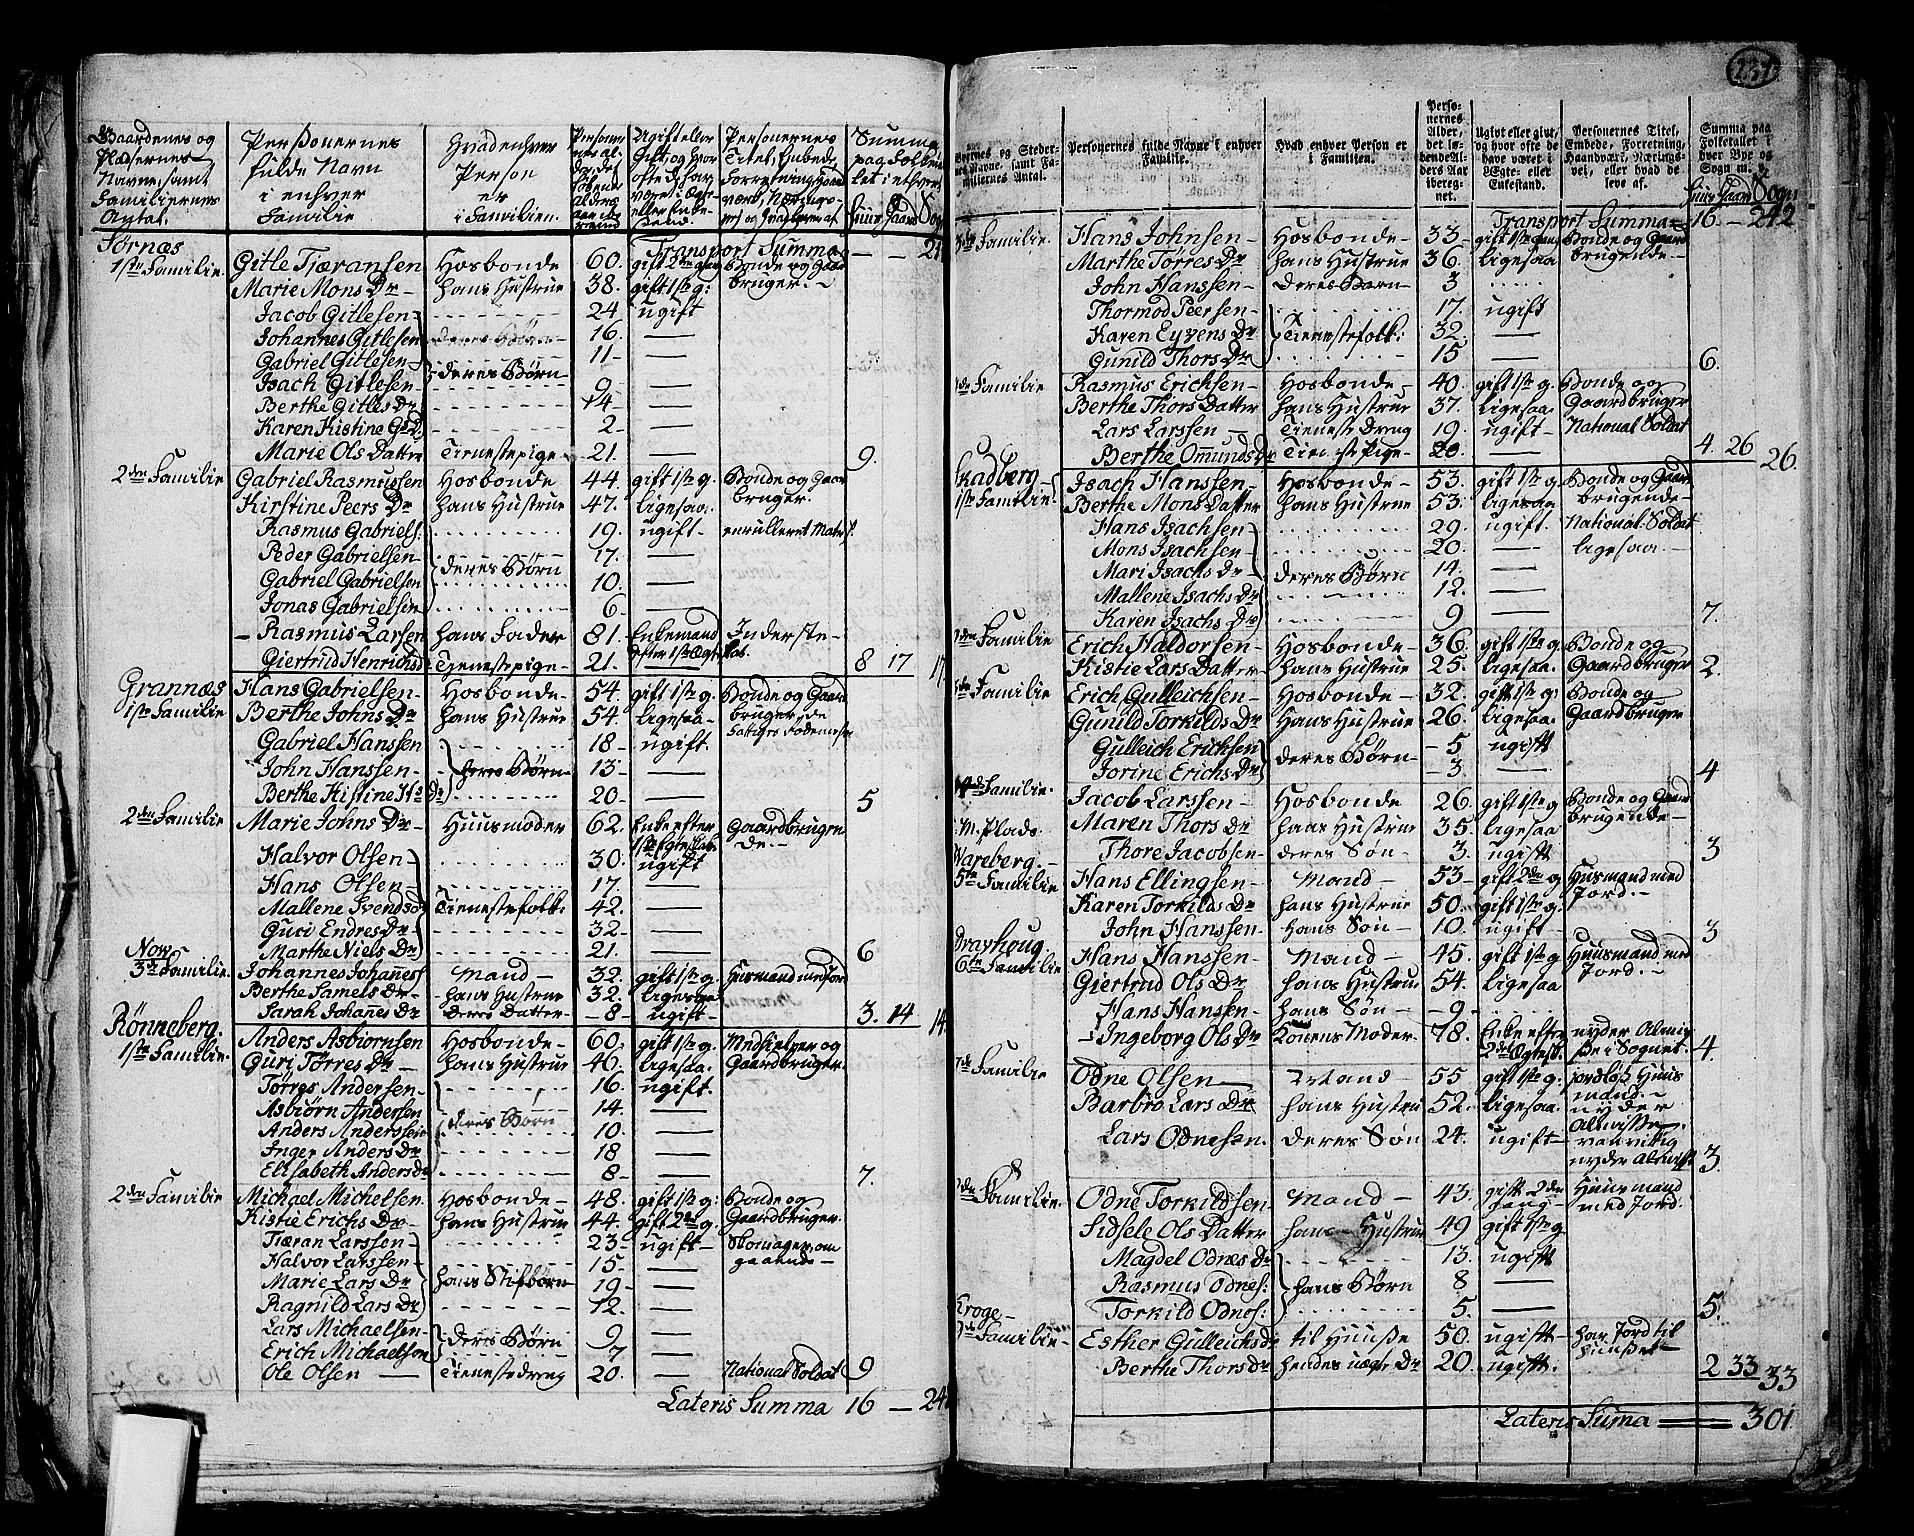 Gaardenes og Pladsernes Navne, samt Familiernes Antal.
Personernes fulde Navn i enhver Familie
Hvad enhver Person er i Familien.
Summa paa Folketallet i ethvert
Huus Gaard Sogn
Tornæs
Transport Summa — — 21
1ste Familie Gitle Tjæransen Hosbonde 60. gift 2den gang Bonde og Gaardbruger.
Marie Mons Dr hans Hustrue 38. gift 1ste g:
Jacob Gitlesen 24 ugift
Johannes Gitlesen deres Börn 16. —
Gabriel Gitlesen 11 —
Isach Gitlesen deres Börn 9 —
Berthe Gitles Dr 4 —
Karen Kistine G. D. 2 —
Marie Ols Datter Tienestepige 21. — 9.
2den Familie Gabriel Rasmussen Hosbonde 44. gift 1ste g. Bonde og Gaardbruger.
Kirstine Peers Dr hans Hustrue 47. ligesaa.
Rasmus Gabriels: 19. ugift enrulleret Matros.
Peder Gabrielsen 17. —
Gabriel Gabrielsen deres Börn 10. —
Jonas Gabrielsen 6. —
Rasmus Larsen hans Fader 81. Enkemand efter 1ste Ægteskab. Inderste
Giertrud Henrichs D. Tienestepige 21. — 8 17 17
Grannæs
1ste Familie Hans Gabrielsen Hosbonde 54. gift 1ste g. Bonde og Gaardbruger, de
Berthe Johns Dr hans Hustrue 54. ligesaa
Gabriel Hanssen 18 ugift.
John Hanssen deres Börn 13 —
Berthe Kistine H: Dr 20 — 5
2den Familie Marie Johns Dr Huusmoder 62. Enke efter 1ste Egteskab Gaardbrugende.
Halvor Olsen 30. ugift
Hans Olsen 17. —
Mallene Svends D Tienestefolk: 42. —
Guri Endres Dr 32 —
Marthe Niels Dr 21. — 6
3die Familie Johannes Johanes: Mand 32. gift 1ste g. Husmand med Jord
Berthe Samels Dr hans Hustrue 32. ligesaa
Sarah Johanes Dr deres Datter 8 ugift 3. 14 14
Rönneberg.
1ste Familie. Anders Asbiornsen Hosbonde 60. gift 1ste g. Medhielper og Gaardbruger.
Guri Torres Dr hans Hustrue 46. ligesaa.
Törres Andersen 16. ugift.
Asbiörn Andersen 14. —
Anders Anderssen deres Börn 10. —
Inger Anders Dr 18 —
Elisabeth Anders Dr 8 — 7.
2den Familie Michael Michelsen Hosbonde 48. gift 1ste g: Bonde og Gaardbruger.
Kistie Erichs Dr hans Hustrue 44. gift 2den g.
Tiæran Larssen 23 ugift Skomager om gaaende
Halvor Larssen 15 —
Marie Lars Dr hans Stifbörn 19 —
Ragnild Lars Dr 12. —
Lars Michaelsen 9 —
Erich Michaelson deres Börn 7 —
Ole Olsen Tienestedreng 20. — National Soldat 9
Lateris Summa 16 — 24
237
Byernes og Stedernes Navne, samt Familiernes Antal.
Personernes fulde Navne i enhver Familie.
Hvad enhver Person er i Familien.
Personernes Alder, det løbende Alders Aar iberegnet.
Ugivt eller givt, og hvor ofte de have været i Ægte- eller Enkestand.
Personernes Titel, Embede, Forretning, Haandværk, Næringsvei, eller hvad de leve af.
Summa paa Folketallet i hver Bye og Sogn m. v.
Huus Gaard Sogn
Transport Summa 16. — 242
Familie. Hans Johnsen Hosbonde 33 gift 1ste gang Bonde og Gaardbrugende
Marthe Törres Dr hans Hustrue 36. ligesaa
John Hanssen deres Barn 3
Thormod Peersen 17. ugift
Karen Eyvens Dr Tienestefolk: 32. —
Gunild Thors Dr 15 — 6.
Familie Rasmus Erichsen Hosbonde 40. gift 1ste g. Bonde og Gaardbruger
Berthe Thors Datter hans Hustrue 37. ligesaa.
Lars Larssen Tieneste Dreng 19. ugift National Soldat
Berthe Omunds Dr Tieneste Pige 20. — 4. 26 26.
Skadberg
1ste Familie. Isach Hanssen Hosbonde 53. gift 1ste g. Bonde og Gaardbrugende
Berthe Mons Datter hans Hustrue 53. ligesaa
Hans Isachsen 29. ugift National Soldat
Mons Isachsen 20. — ligesaa
Mari Isachs Dr deres Börn 14. —
Mallene Isachs Dr 12. —
Karen Isachs Dr 9 — 7.
Familie Erich Haldorsen Hosbonde 36. gift 1ste g Bonde og Gaardbruger
Kistie Lars Datter hans Hustrue 25. ligesaa. 2.
Familie Erich Gulleichsen Hosbonde 32. gift 1ste g: Bonde og Gaardbruger
Gunild Torkilds Dr Hans Hustrue 26. ligesaa.
Gulleich Erichsen deres Börn 5 ugift
Jorine Erichs Dr 3 — 4
Familie. Jacob Larssen Hosbonde 26. gift 1ste g Bonde og Gaardbrugende
Maren Thors Dr hans Hustrue 35. ligesaa
Thore Jacobsen deres Sön 3. ugift 3
Plads.
Wareberg.
5te Familie Hans Ellingsen Mand 53 gift 2den g Husmand med Jord.
Karen Torkilds Dr hans Hustrue 50. gift 1ste g.
John Hanssen hans Sön 10. ugift 3
6te Familie Hans Hanssen Mand 45. gift 1ste g Huusmand med Jord.
Giertrud Ols Dr hans Hustrue 54. ligesaa
Hans Hanssen hans Sön 9
Ingeborg Ols Dr Konens Moder 78. Enke efter 2den Ægtesk. nyder Almisse i Sognet. 4.
7de Familie Odne Olsen Mand 55 gift 1ste g. jordløs Huusmand.
Barbro Lars Dr hans Hustrue 52. ligesaa. nyder Almisse.
Lars Odnesen. deres Sön 24. ugift vanvittig nyder Almisse 3.
8
Familie. Odne Torkildsen Mand 43. gift 2den gang Huusmand med Jord.
Sidsele Ols Datter hans Hustrue 49 gift 1ste g
Magdel Odnes Dr 13. ugift
Rasmus Odnes: hans Börn 8 —
Torkild Odnes: 5. — 5.
Kroge
Familie Esther Gulleichs Dr til Huuse 50. ugift har Jord til Huuset
Berthe Thors Dr hendes uægte Dr 20. ugift. 2 33 33
Lateris Suma 301